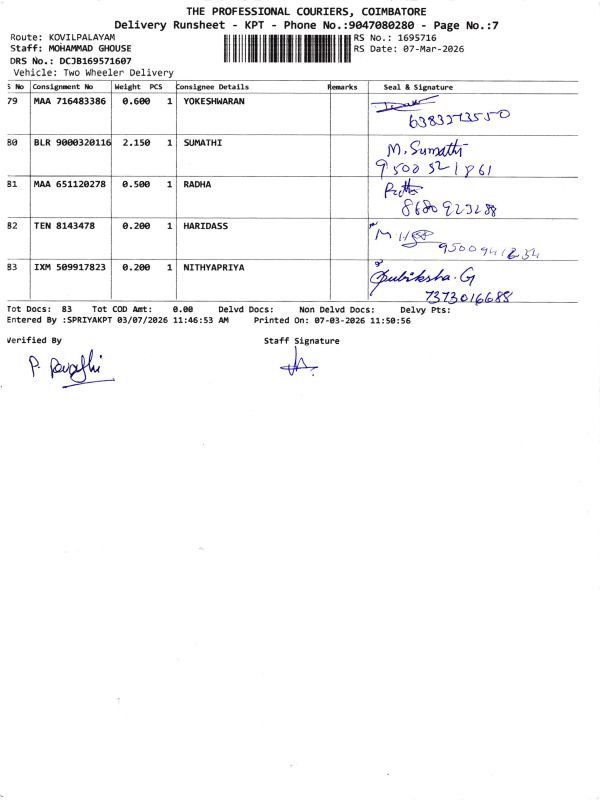 THE PROFESSIONAL COURIERS, COIMBATORE
Delivery Runsheet - KPT - Phone No.:9047080280 - Page No.:7
Route: KOVILPALAYAM
RS No.: 1695716
Staff: MOHAMMAD GHOUSE
RS Date: 07-Mar-2026
DRS No.: DCJB169571607
Vehicle: Two Wheeler Delivery
S No Consignment No Weight PCS Consignee Details Remarks Seal & Signature
79 MAA 716483386 0.600 1 YOKESHWARAN
6383273550
80 BLR 9000320116 2.150 1 SUMATHI M. Sumathi
9500521861
81 MAA 651120278 0.500 1 RADHA
8680923288
82 TEN 8143478 0.200 1 HARIDASS
83 IXM 509917823 0.200 1 NITHYAPRIYA Pubiksha. G
7373016688
Tot Docs: 83 Tot COD Amt: 0.00 Delvd Docs: Non Delvd Docs: Delvy Pts:
Entered By :SPRIYAKPT 03/07/2026 11:46:53 AM Printed On: 07-03-2026 11:50:56
Verified By Staff Signature